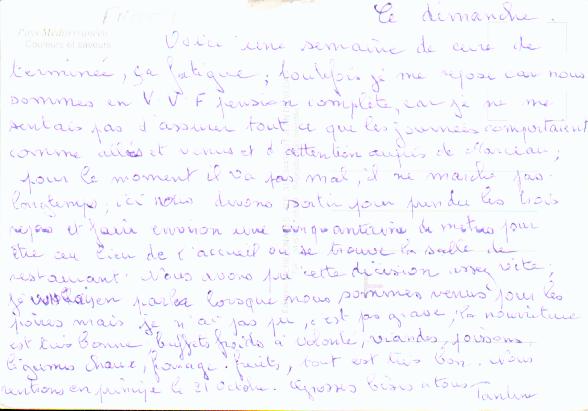 Le dimanche.
Pays Méditerranéen
Couleurs et saveurs
Voici une semaine de cure de
terminée, ça fatigue ; toutefois je me repose car nous
sommes en V V F pension complète, car je ne me
sentais pas d'assurer tout ce que les journées comportaient
comme allées et venues et d'attention auprès de Marceau ;
pour le moment il va pas mal, il ne marche pas
longtemps ; ici nous devons sortir pour prendre les trois
repas et faire environ une cinquantaine de mètres pour
être au lieu de l'accueil où se trouve la salle de
restaurant. Nous avons pris cette décision assez vite ;
je parler lorsque nous sommes venus pour les
poires mais je n'ai pas pu, c'est pas grave, la nourriture
est très bonne, buffets froids à volonté, viandes, poissons,
légumes chaux, fromage, fruits, tout est très bon. Nous
rentrons en principe le 21 octobre. Grosses bises à tous